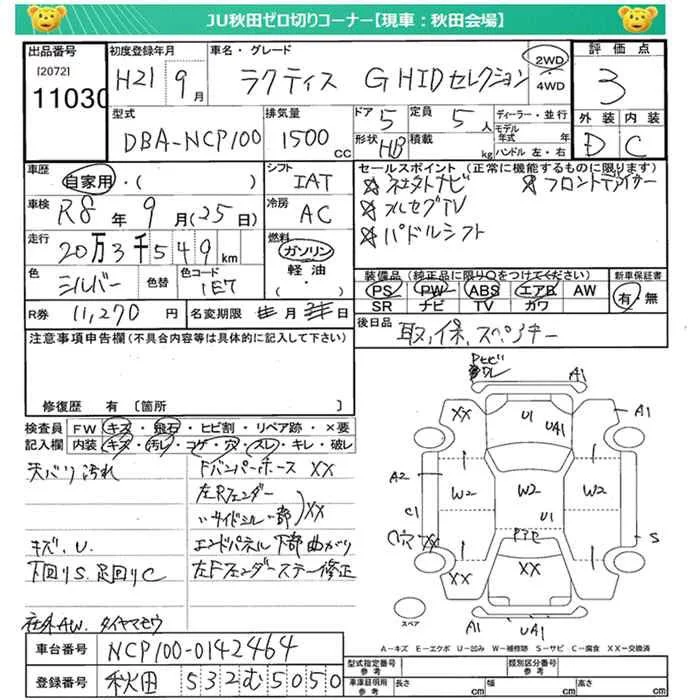 JU秋田ゼロ切りコーナー【現車：秋田会場】
出品番号 初度登録年月 車名・グレード 評価点
[2072] 11030 H21年 9月 ラクティス G HIDセレクション 2WD・4WD 3
型式 排気量 ドア 5 定員 5人 ディーラー・並行 外装 内装
DBA-NCP100 1500cc 形状 HB 積載 kg モデル年式 年 ハンドル 左・右 D C
車歴 自家用・( ) シフト IAT セールスポイント(正常に機能するものに限ります)
車検 R8年 9月(25日) 冷房 AC フロント
メルセグTV
パドルシフト
走行 20万3千549km 燃料 ガソリン 軽油・
色 シルバー 色替 色コード 1E7 装備品(純正品に限り○をつけてください) 新車保証書
PS PW ABS エアB AW 有・無
SR ナビ TV カワ
R券 11,270円 名変期限 月 日 後日品 取、保、スペアキー
注意事項申告欄(不具合内容等は具体的に記入して下さい)
修復歴 有 〔箇所 〕
検査員記入欄 FW キズ・飛石・ヒビ割・リペア跡・×要
内装 キズ・汚レ・コゲ・穴・スレ・キレ・破レ
天バリ汚れ FバンパーホースXX
左Rフェンダー
〃サイドシル一部 XX
キズ、U. エンドパネル下部曲がり
下回りS.足回りC 左Fフェンダーステー修正
社外AW.
車台番号 NCP100-0142464
登録番号 秋田 532む5050
A1
XX U1 A1
UA1
A2 W2 W2 W2
C1 U1
S
XX XX
A1 UA1
スペア
A-キズ E-エクボ U-凹み W-補修跡 S-サビ C-腐食 XX-交換済
型式指定番号 類別区分番号
車庫証明用参考 長さ cm 幅 cm 高さ cm